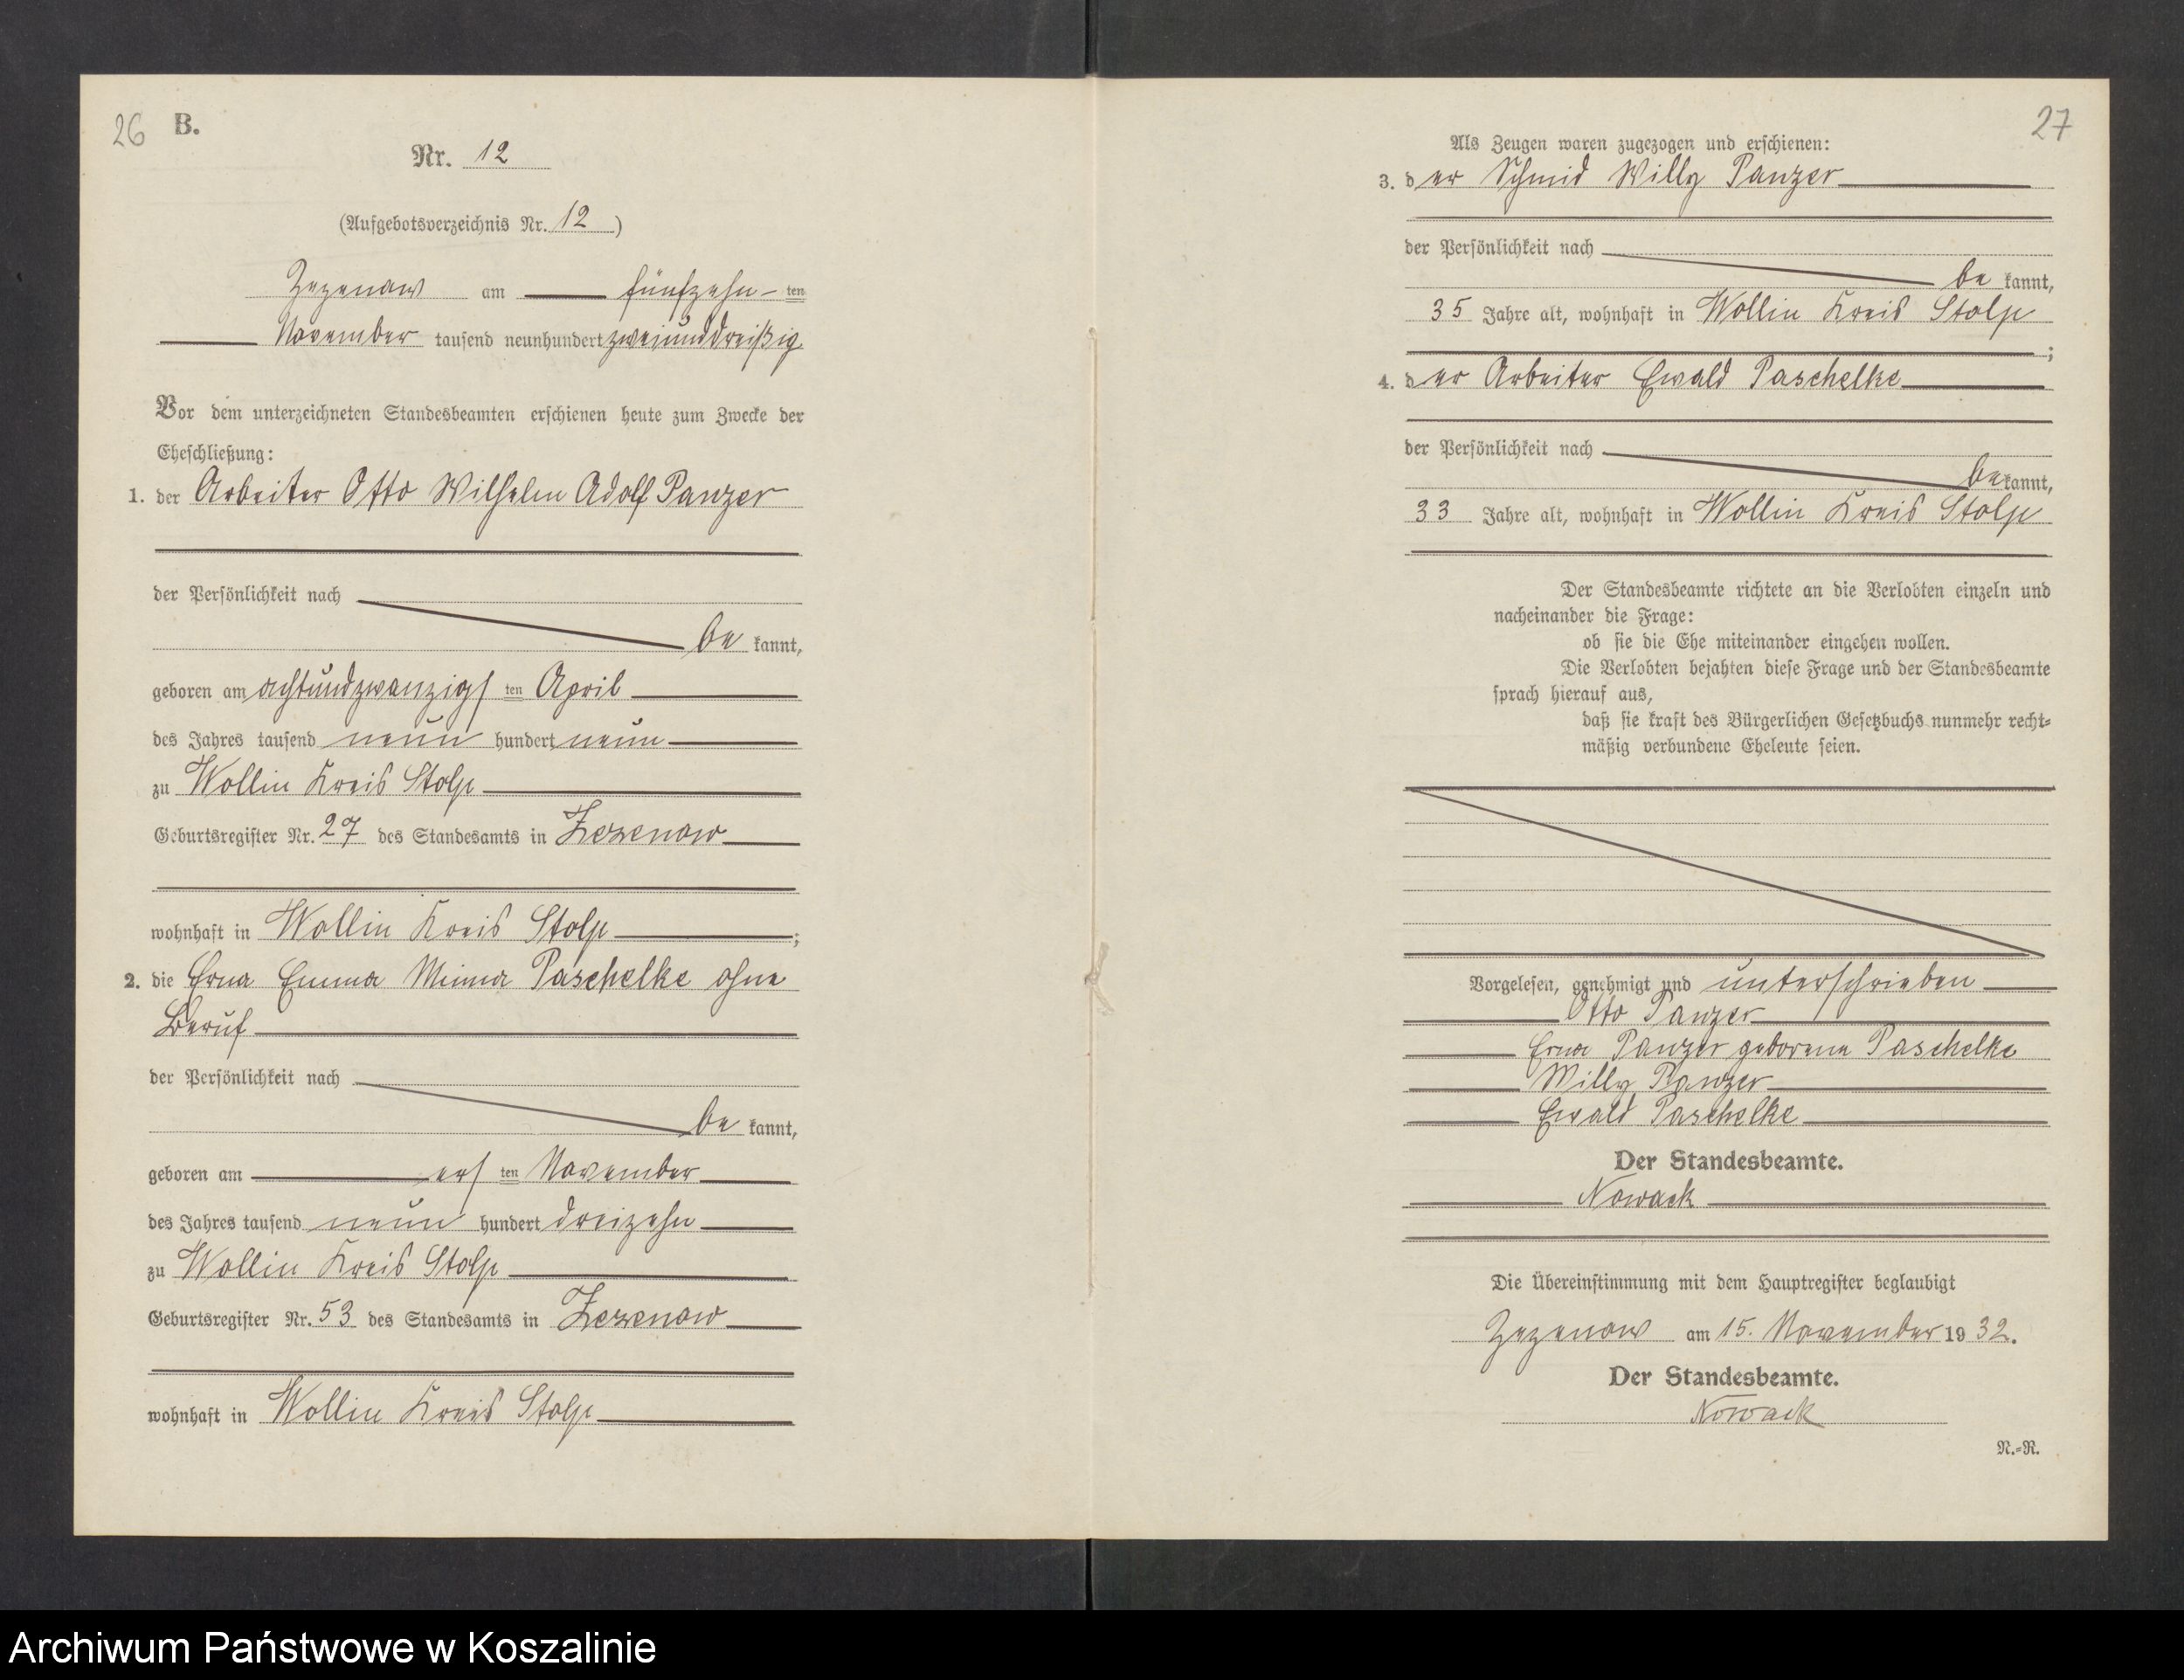 26 B.
Nr. 12
(Aufgebotsverzeichnis Nr. 12)
Zezenow am fünfzehn-ten
November tausend neunhundert zweiunddreißig.
Vor dem unterzeichneten Standesbeamten erschienen heute zum Zwecke der
Eheschließung:
1. der Arbeiter Otto Wilhelm Adolf Panzer
der Persönlichkeit nach
be kannt,
geboren am achtundzwanzigsten April
des Jahres tausend neun hundert neun
zu Wollin Kreis Stolp
Geburtsregister Nr. 27 des Standesamts in Zezenow
wohnhaft in Wollin Kreis Stolp;
2. die Erna Emma Minna Paschelke ohne
Beruf
der Persönlichkeit nach
be kannt,
geboren am ersten November
des Jahres tausend neun hundert dreizehn
zu Wollin Kreis Stolp
Geburtsregister Nr. 53 des Standesamts in Zezenow
wohnhaft in Wollin Kreis Stolp
27
Als Zeugen waren zugezogen und erschienen:
3. der Schmid Willy Panzer
der Persönlichkeit nach
be kannt,
35 Jahre alt, wohnhaft in Wollin Kreis Stolp
;
4. der Arbeiter Ewald Paschelke
der Persönlichkeit nach
bekannt,
33 Jahre alt, wohnhaft in Wollin Kreis Stolp
Der Standesbeamte richtete an die Verlobten einzeln und
nacheinander die Frage:
ob sie die Ehe miteinander eingehen wollen.
Die Verlobten bejahten diese Frage und der Standesbeamte
sprach hierauf aus,
daß sie kraft des Bürgerlichen Gesetzbuchs nunmehr recht-
mäßig verbundene Eheleute seien.
Vorgelesen, genehmigt und unterschrieben
Otto Panzer
Erna Panzer geborene Paschelke
Willy Panzer
Ewald Paschelke
Der Standesbeamte.
Nowack
Die Übereinstimmung mit dem Hauptregister beglaubigt
Zezenow am 15. November 1932.
Der Standesbeamte.
Nowack
N.-R.
Archiwum Państwowe w Koszalinie